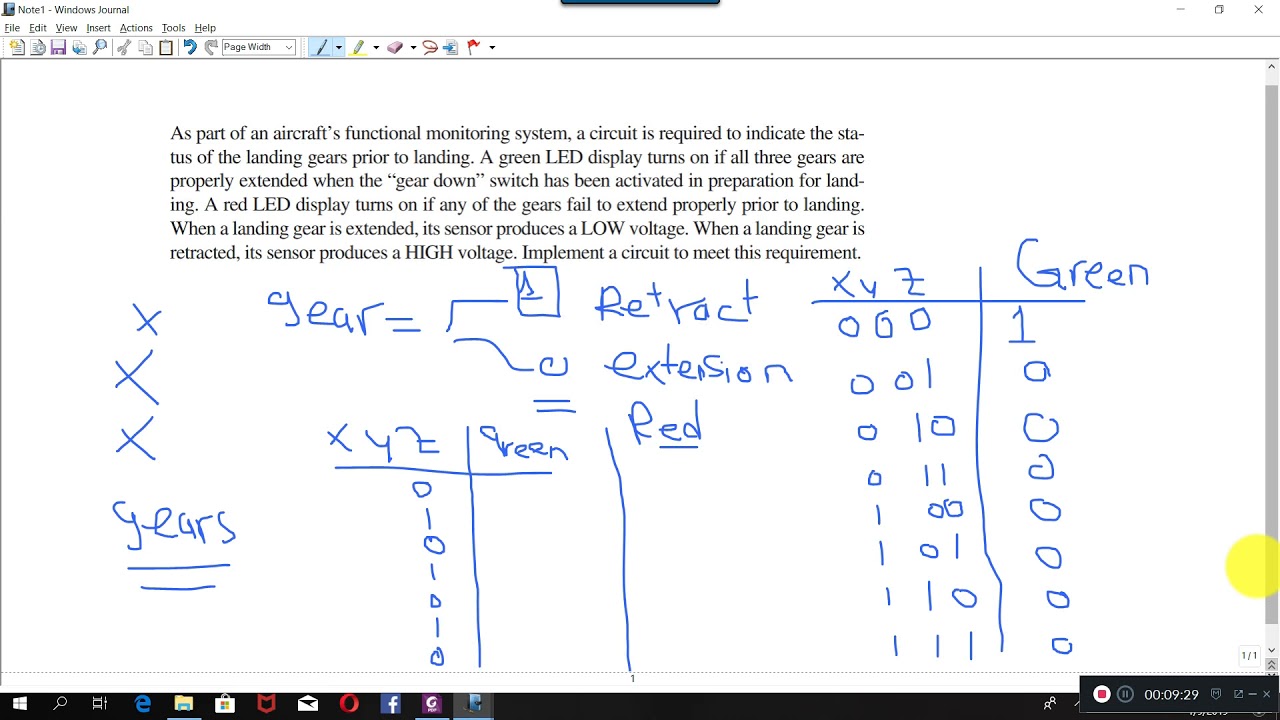 Note1 - Windows Journal
File Edit View Insert Actions Tools Help
Page Width
As part of an aircraft's functional monitoring system, a circuit is required to indicate the sta-
tus of the landing gears prior to landing. A green LED display turns on if all three gears are
properly extended when the “gear down” switch has been activated in preparation for land-
ing. A red LED display turns on if any of the gears fail to extend properly prior to landing.
When a landing gear is extended, its sensor produces a LOW voltage. When a landing gear is
retracted, its sensor produces a HIGH voltage. Implement a circuit to meet this requirement.
x
x
x
gears
gear = 1 Retract
0 extension
x y z green Red
0
1
0
1
0
1
0
x y z Green
0 0 0 1
0 0 1 0
0 1 0 0
0 1 1 0
1 0 0 0
1 0 1 0
1 1 0 0
1 1 1 0
1
1 / 1
00:09:29